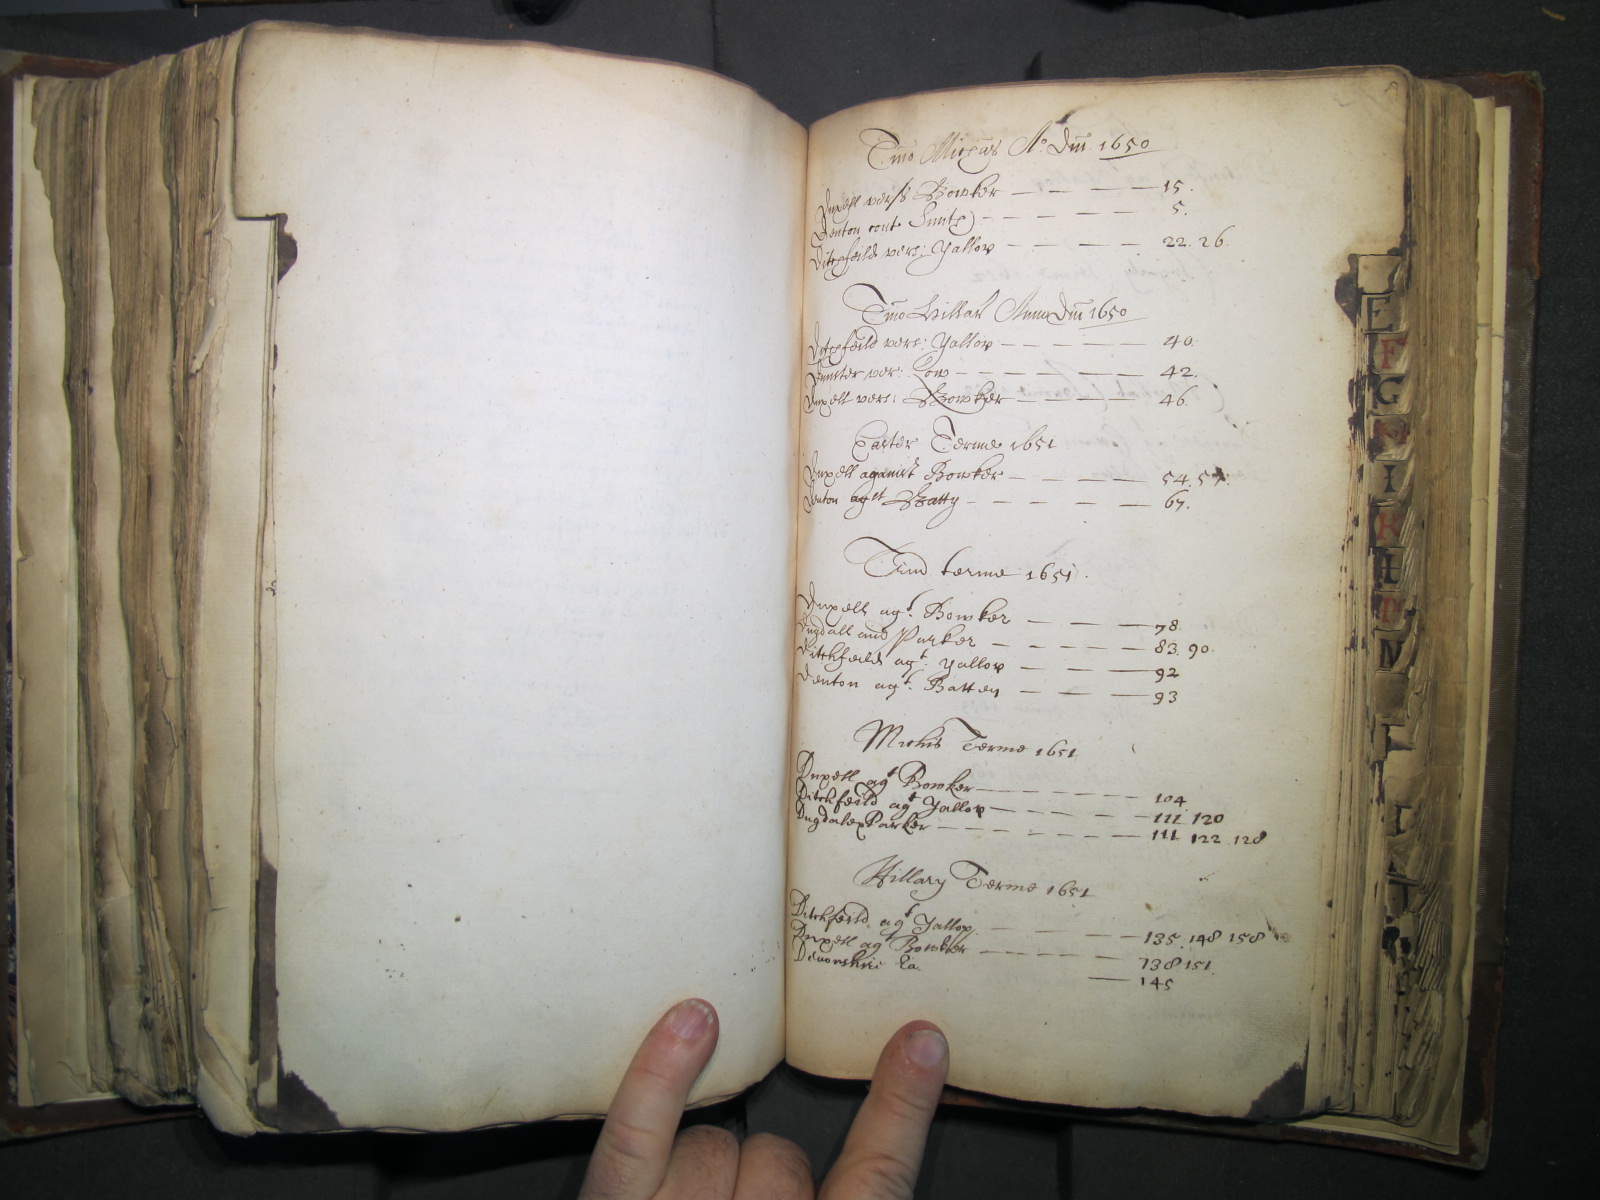 Tmo Michis Ao Dm 1650
Duxell verss Bowker 15.
Denton cont 5.
Ditchfeild vers: Yallop 22. 26.
Tmo Hillar Anno Dm 1650
Ditchfeild vers: Yallop 40.
ver: Low 42.
Duxell vers: Bowker 46.
Easter Terme 1651
Duxell against Bowker 54. 57.
Denton agst Batty 67.
Trin terme 1651.
Duxell agt. Bowker 78.
Dugdall and Parker 83. 90.
Ditchfeild agt. Yallop 92
Denton agt. Batten 93
Michis Terme 1651
Duxell agt Bowker 104
Ditchfeild agt Yallop 111 120
Dugdale Parker 111 122 128
Hillary Terme 1651
Ditchfeild agt Yallop 135. 148 158
Duxell agt Bowker 138 151
Devonshire 145
E
F
G
I
K
L
P
M